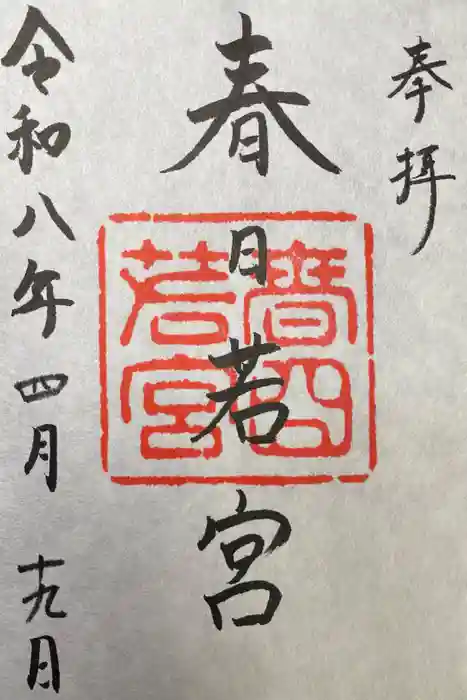 奉拝
春日若宮
春日
若宮
令和八年四月十九月